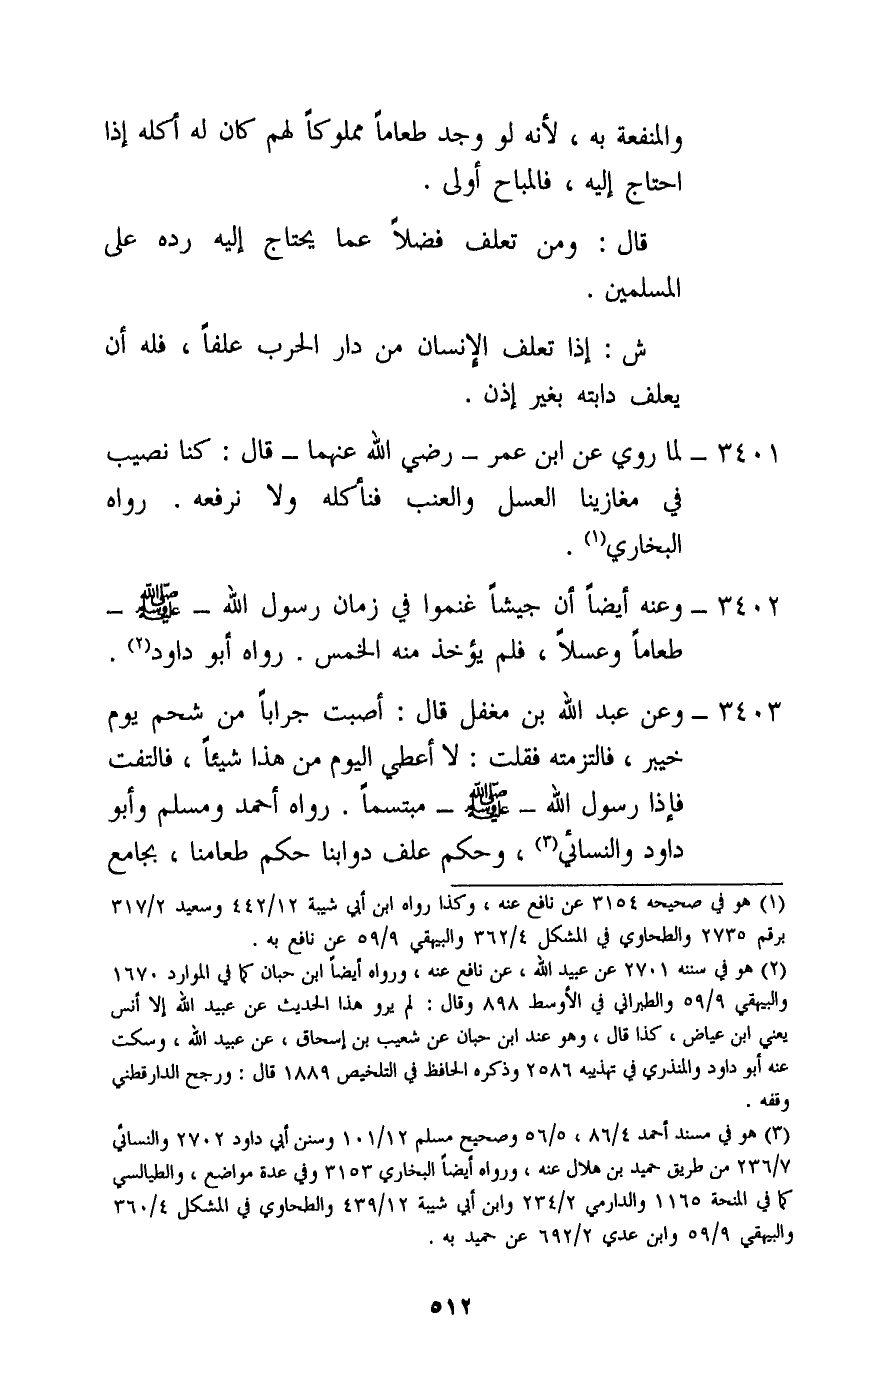 والمنفعة به ، لأنه لو وجد طعاماً مملوكاً لهم كان له أكله إذا
احتاج إليه ، فالمباح أولى .
قال : ومن تعلف فضلاً عما يحتاج إليه رده على
المسلمين .
ش : إذا تعلف الإنسان من دار الحرب علفاً ، فله أن
يعلف دابته بغير إذن .
٣٤٠١ – لما روي عن ابن عمر – رضي الله عنهما – قال : كنا نصيب
في مغازينا العسل والعنب فنأكله ولا نرفعه . رواه
البخاري(١) .
٣٤٠٢ – وعنه أيضاً أن جيشاً غنموا في زمان رسول الله – ﷺ –
طعاماً وعسلاً ، فلم يؤخذ منه الخمس . رواه أبو داود(٢) .
٣٤٠٣ – وعن عبد الله بن مغفل قال : أصبت جراباً من شحم يوم
خيبر ، فالتزمته فقلت : لا أعطي اليوم من هذا شيئاً ، فالتفت
فإذا رسول الله – ﷺ – مبتسماً . رواه أحمد ومسلم وأبو
داود والنسائي(٣) ، وحكم علف دوابنا حكم طعامنا ، بجامع
(١) هو في صحيحه ٣١٥٤ عن نافع عنه ، وكذا رواه ابن أبي شيبة ٤٤٢/١٢ وسعيد ٣١٧/٢
برقم ٢٧٣٥ والطحاوي في المشكل ٣٦٢/٤ والبيهقي ٥٩/٩ عن نافع به .
(٢) هو في سننه ٢٧٠١ عن عبيد الله ، عن نافع عنه ، ورواه أيضاً ابن حبان كما في الموارد ١٦٧٠
والبيهقي ٥٩/٩ والطبراني في الأوسط ٨٩٨ وقال : لم يرو هذا الحديث عن عبيد الله إلا أنس
يعني ابن عياض ، كذا قال ، وهو عند ابن حبان عن شعيب بن إسحاق ، عن عبيد الله ، وسكت
عنه أبو داود والمنذري في تهذيبه ٢٥٨٦ وذكره الحافظ في التلخيص ١٨٨٩ قال : ورجح الدارقطني
وقفه .
(٣) هو في مسند أحمد ٨٦/٤ ، ٥٦/٥ وصحيح مسلم ١٠١/١٢ وسنن أبي داود ٢٧٠٢ والنسائي
٢٣٦/٧ من طريق حميد بن هلال عنه ، ورواه أيضاً البخاري ٣١٥٣ وفي عدة مواضع ، والطيالسي
كما في المنحة ١١٦٥ والدارمي ٢٣٤/٢ وابن أبي شيبة ٤٣٩/١٢ والطحاوي في المشكل ٣٦٠/٤
والبيهقي ٥٩/٩ وابن عدي ٦٩٢/٢ عن حميد به .
٥١٢